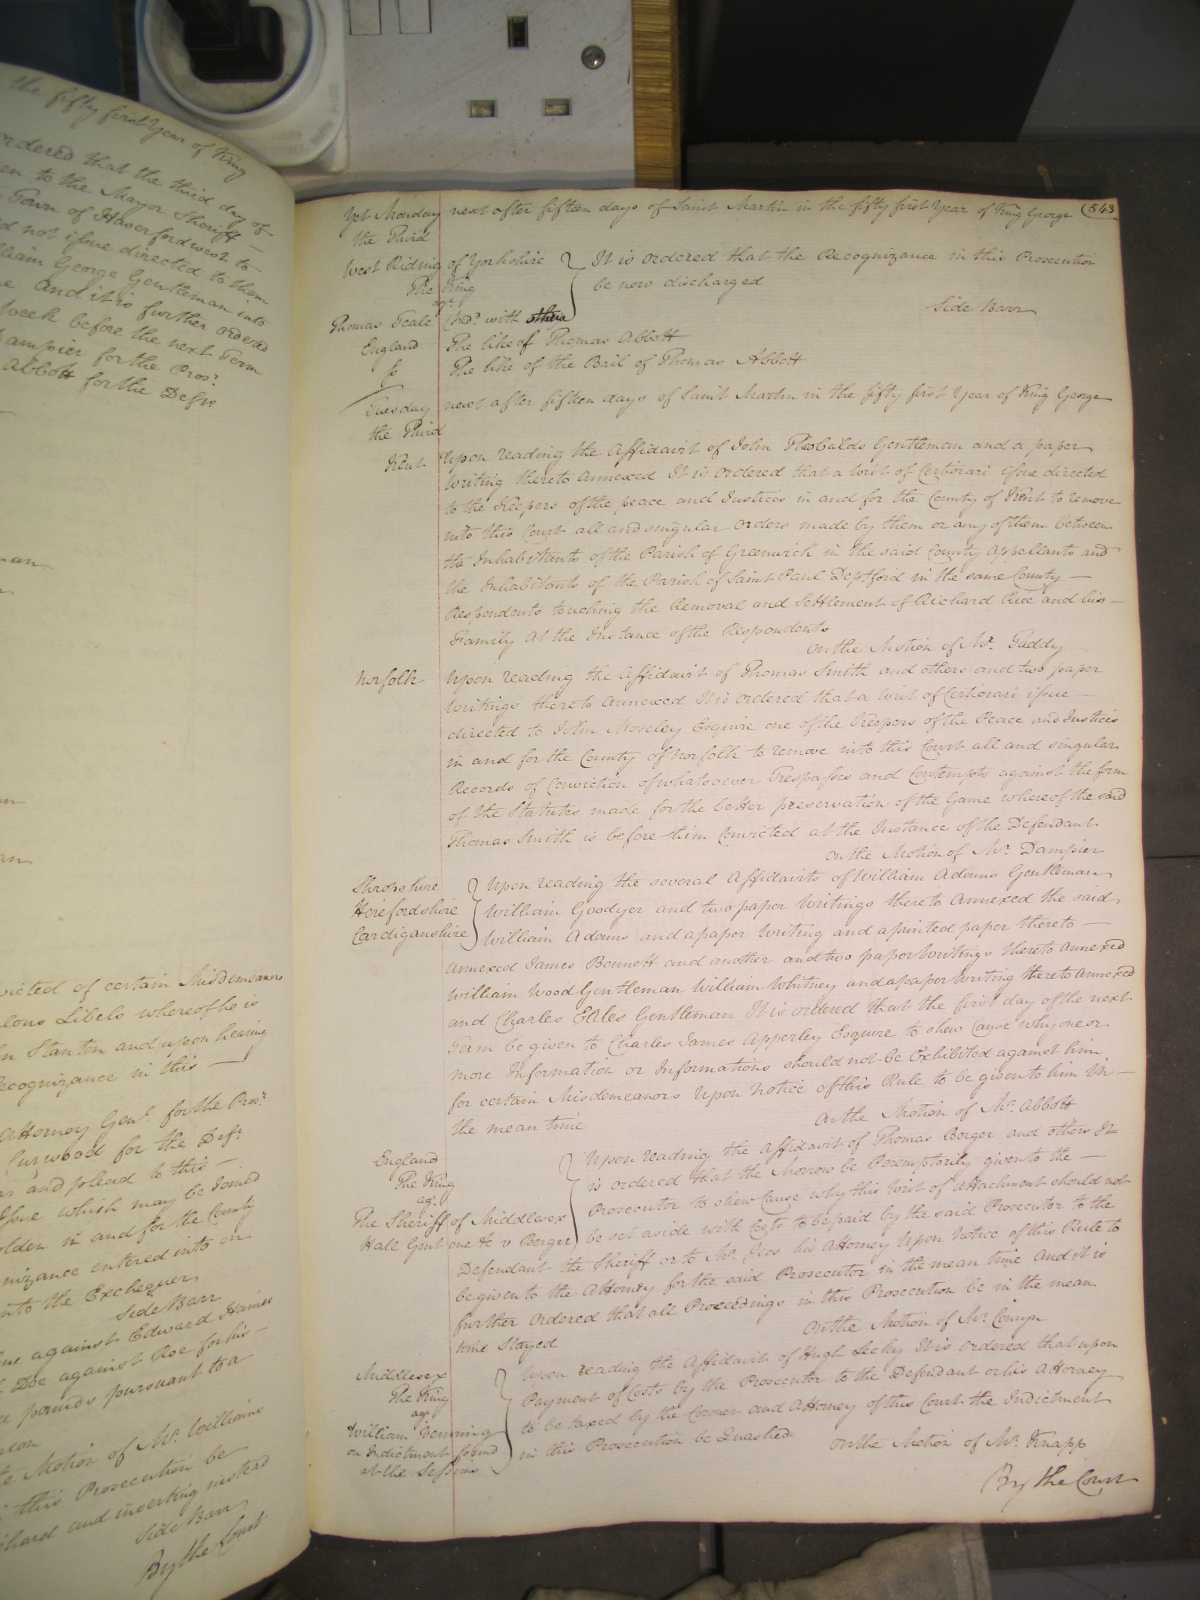 the fifty first Year of King
ordered that the third day of
en to the Mayor Sheriff
Town of Haverfordwest to
d not issue directed to them
lliam George Gentleman into
e And it is further ordered
Week before the next Term
Dampier for the Pros.r
Abbott for the Def.t
man
victed of certain Misdemeanors
lous Libels whereof he is
n Stanton and upon hearing
Recognizance in this
Attorney Gen.l for the Pros.r
Curwood for the Def.t
ar and plead to this
Issue which may be Joined
olden in and for the County
nizance entered into on
nto the Exchequer
Side Barr
against Edward Haines
Doe against Roe for his
pounds pursuant to a
e Motion of Mr. Williams
this Prosecution be
chard and inserting instead
Side Barr
By the Court
Yet Monday next after fifteen days of Saint Martin in the fifty first Year of King George (543
the Third
West Riding of Yorkshire It is ordered that the Recognizance in this Prosecution
The King be now discharged
ag.t Side Barr
Thomas Teale Ind.d with others
England The like of Thomas Abbott
The like of the Bail of Thomas Abbott
Tuesday next after fifteen days of Saint Martin in the fifty first Year of King George
the Third
Kent Upon reading the Affidavit of John Gentleman and a paper
Writing thereto Annexed It is ordered that a Writ of Certiorari issue directed
to the Keepers of the peace and Justices in and for the County of Kent to remove
into this Court all and singular orders made by them or any of them between
the Inhabitants of the Parish of Greenwich in the said County Appellants and
the Inhabitants of the Parish of Saint Paul Deptford in the same County
Respondents touching the Removal and Settlement of Richard Rice and his
Family At the Instance of the Respondents
On the Motion of Mr. Taddy
Norfolk Upon reading the Affidavit of Thomas Smith and others and two paper
Writings thereto Annexed It is ordered that a Writ of Certiorari issue
directed to John Moseley Esquire one of the Keepers of the Peace and Justices
in and for the County of Norfolk to remove into this Court all and singular
Records of Conviction of whatsoever Trespasses and Contempts against the form
of the Statutes made for the better preservation of the Game whereof the said
Thomas Smith is before them Convicted at the Instance of the Defendant
On the Motion of Mr. Dampier
Shropshire Upon reading the several Affidavits of William Adams Gentleman
Herefordshire William Goodyer and two paper Writings thereto Annexed the said
Cardiganshire William Adams and a paper Writing and a printed paper thereto
Annexed James Bennett and another and two paper Writings thereto Annexed
William Wood Gentleman William Whitney and a paper Writing thereto Annexed
and Charles Gentleman It is ordered that the first day of the next
Term be given to Charles James Apperley Esquire to shew Cause why one or
more Information or Informations should not be Exhibited against him
for certain Misdemeanors Upon notice of this Rule to be given to him In
the mean time
On the Motion of Mr. Abbott
England Upon reading the Affidavit of Thomas Berger and others It
The King is ordered that the Morrow be Peremptorily given to the
ag.t Prosecutor to shew Cause why this Writ of Attachment should not
The Sheriff of Middlesex be set aside with Costs to be paid by the said Prosecutor to the
Hale Gent one &c v Berger Defendant the Sheriff or to Mr. his Attorney Upon Notice of this Rule to
be given to the Attorney for the said Prosecutor in the mean time And it is
further Ordered that all Proceedings in this Prosecution be in the mean
time Stayed
On the Motion of Mr. Comyn
Middlesex Upon reading the Affidavit of Hugh Lecky It is ordered that upon
The King Payment of Costs by the Prosecutor to the Defendant or his Attorney
ag.t to be taxed by the Coroner and Attorney of this Court the Indictment
William in this Prosecution be Quashed On the Motion of Mr. Knapp
on Indictment found
at the Sessions
By the Court